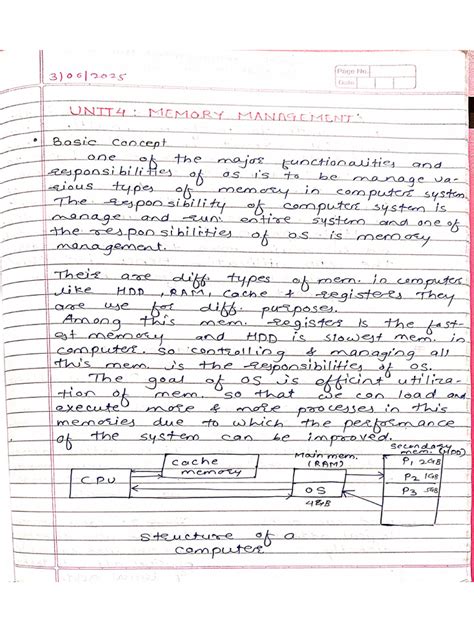 Page No.
Date
3/06/2025
UNIT 4 : MEMORY MANAGEMENT
• Basic Concept
one of the major functionalities and
responsibilities of OS is to be manage va-
rious types of memory in computer system.
The responsibility of computer system is
manage and run entire system and one of
the responsibilities of OS is memory
management.
Their are diff. types of mem. in computer
like HDD, RAM, Cache & registers They
are use for diff. purposes.
Among this mem. register is the fast-
est memory and HDD is slowest mem. in
computer. so controlling & managing all
this mem. is the responsibilities of OS.
The goal of OS is efficint utiliza-
tion of mem. so that we can load and
execute more & more processes in this
memories due to which the performance
of the system can be improved.
CPU
cache
memory
Main mem.
(RAM)
OS
48GB
secondary
mem. (HDD)
P1 2GB
P2 1GB
P3 5GB
structure of a
computer